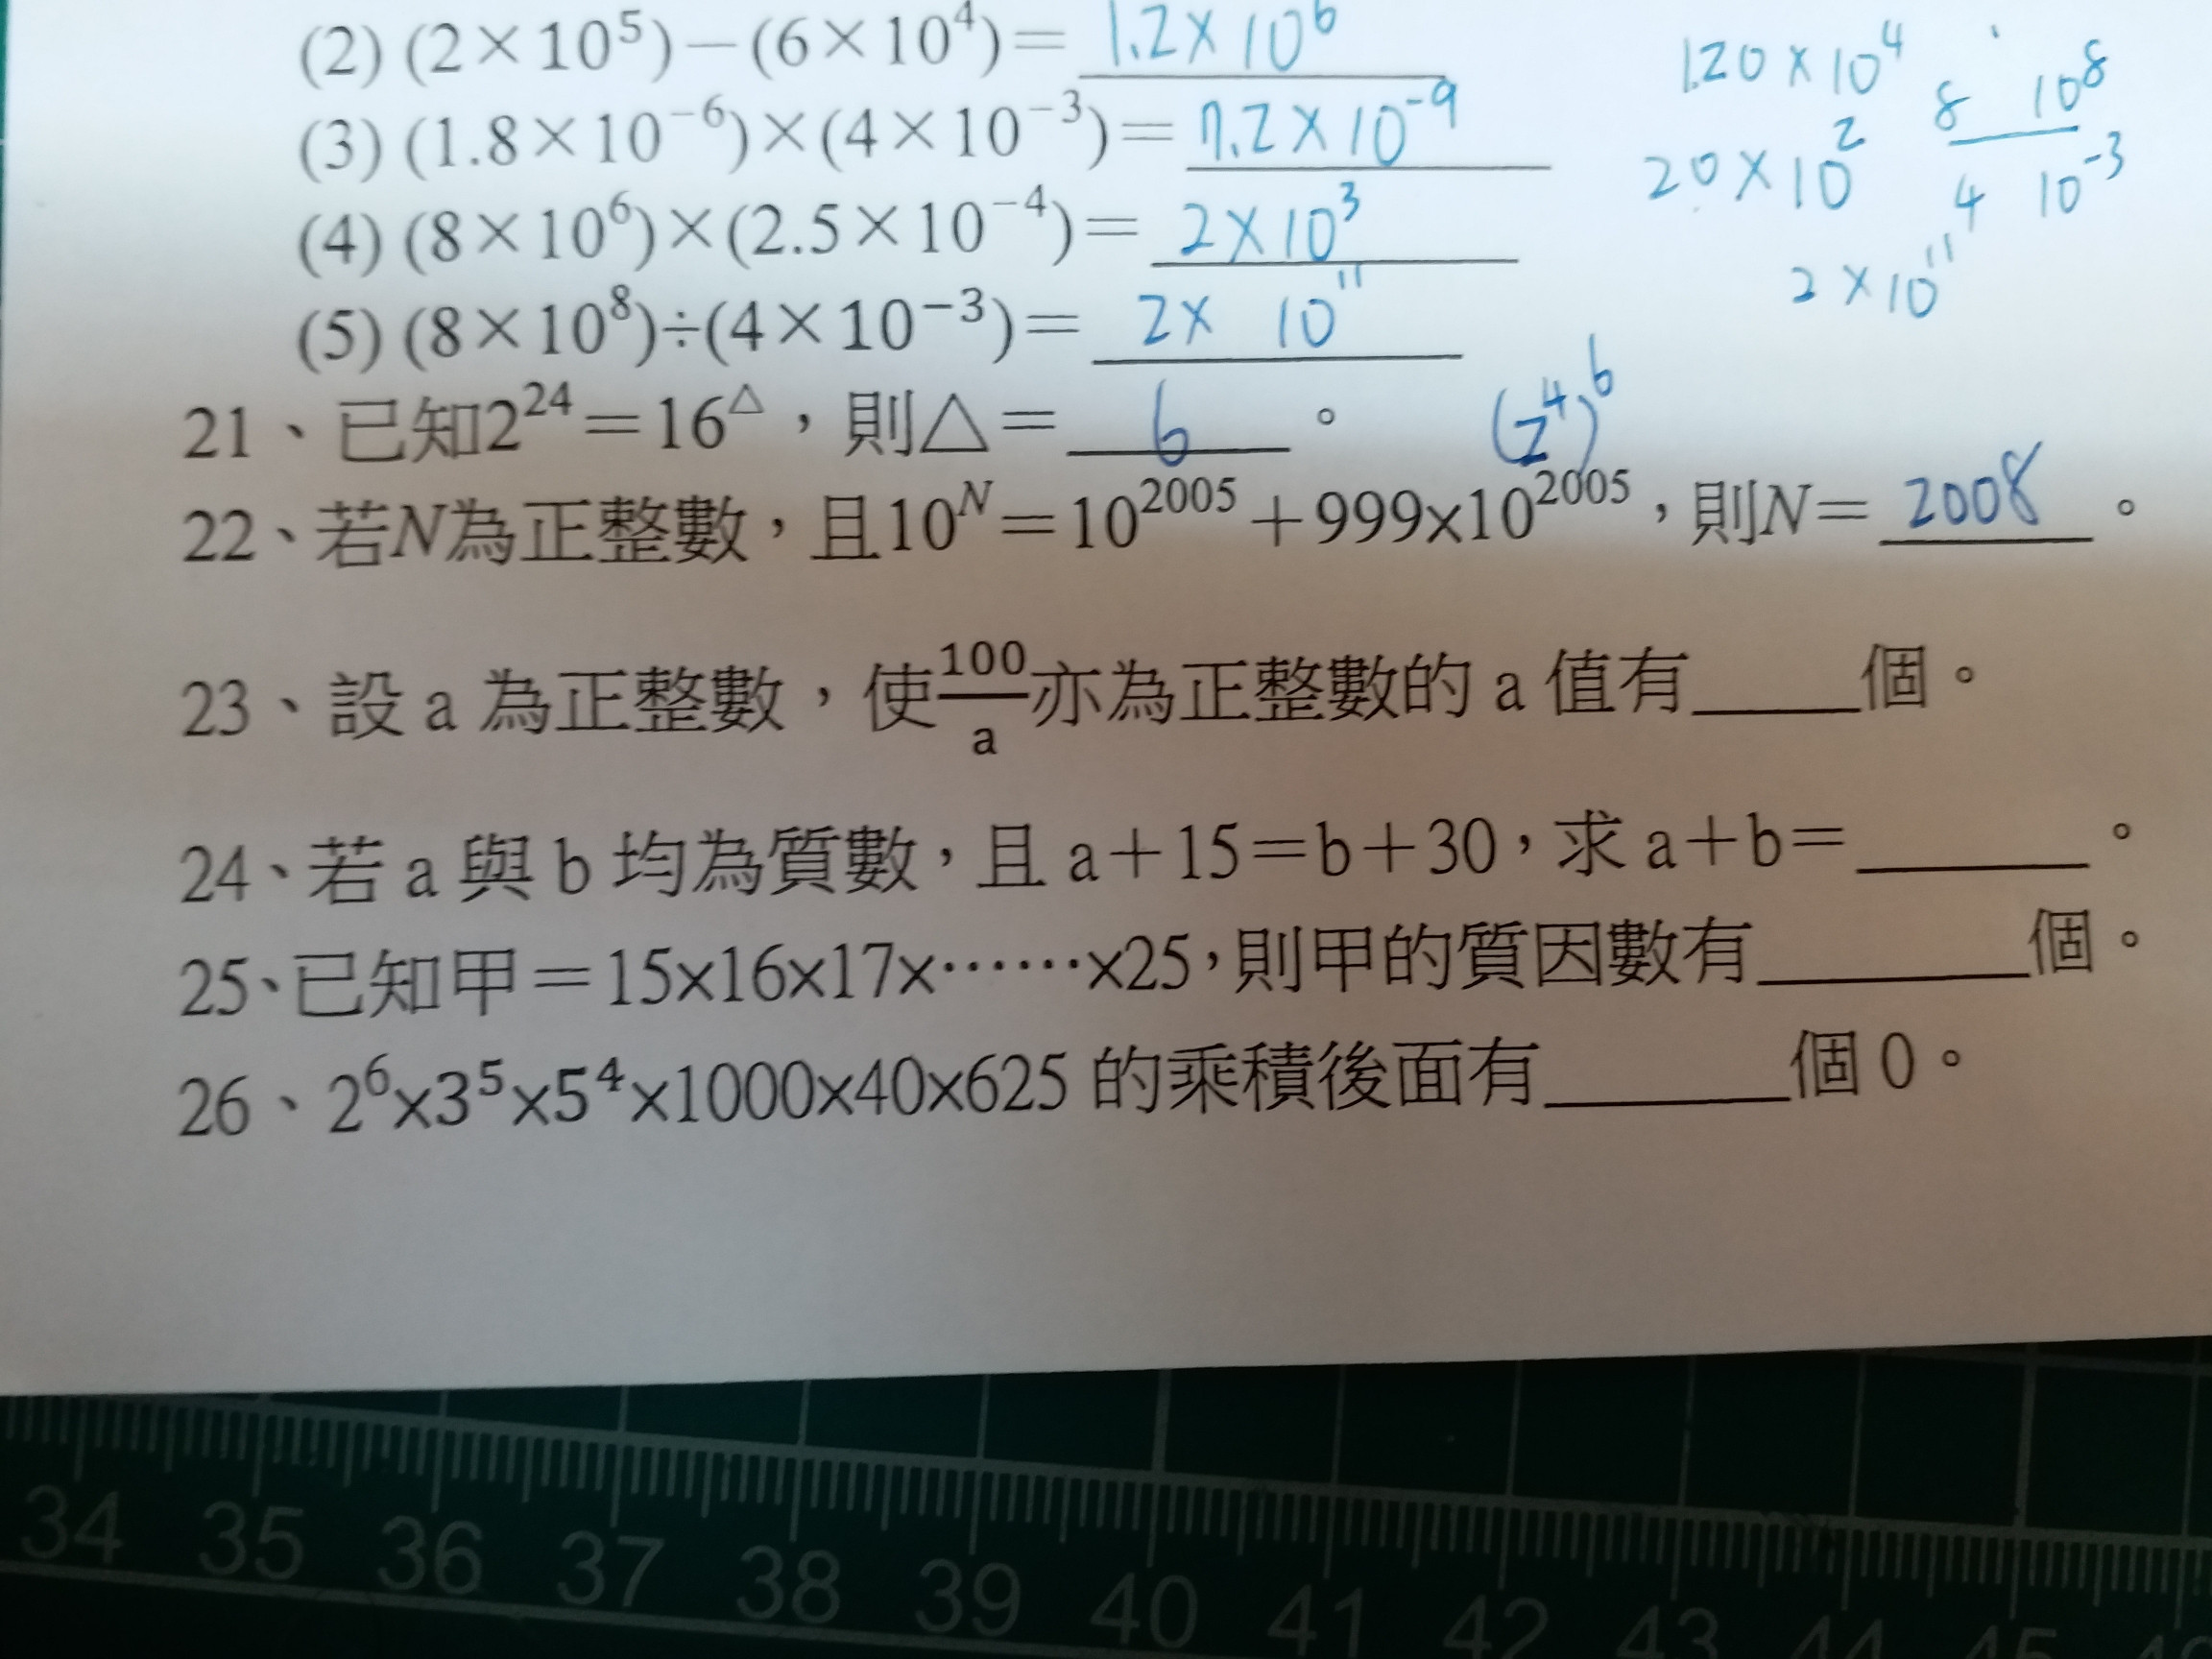 (2) (2×10⁵)－(6×10⁴)＝ 1.2×10⁶
1.20×10⁴
8 10⁸
(3) (1.8×10⁻⁶)×(4×10⁻³)＝ 7.2×10⁻⁹
20×10²
4 10⁻³
(4) (8×10⁶)×(2.5×10⁻⁴)＝ 2×10³
2×10¹¹
(5) (8×10⁸)÷(4×10⁻³)＝ 2× 10¹¹
21、已知2²⁴＝16^△，則△＝ 6 。 (2⁴)⁶
22、若N為正整數，且10^N＝10²⁰⁰⁵＋999×10²⁰⁰⁵，則N＝ 2008 。
23、設 a 為正整數，使100/a亦為正整數的 a 值有____個。
24、若 a 與 b 均為質數，且 a＋15＝b＋30，求 a＋b＝______。
25、已知甲＝15×16×17×⋯⋯×25，則甲的質因數有______個。
26、2⁶×3⁵×5⁴×1000×40×625 的乘積後面有______個 0。
34 35 36 37 38 39 40 41 42 43 44 45